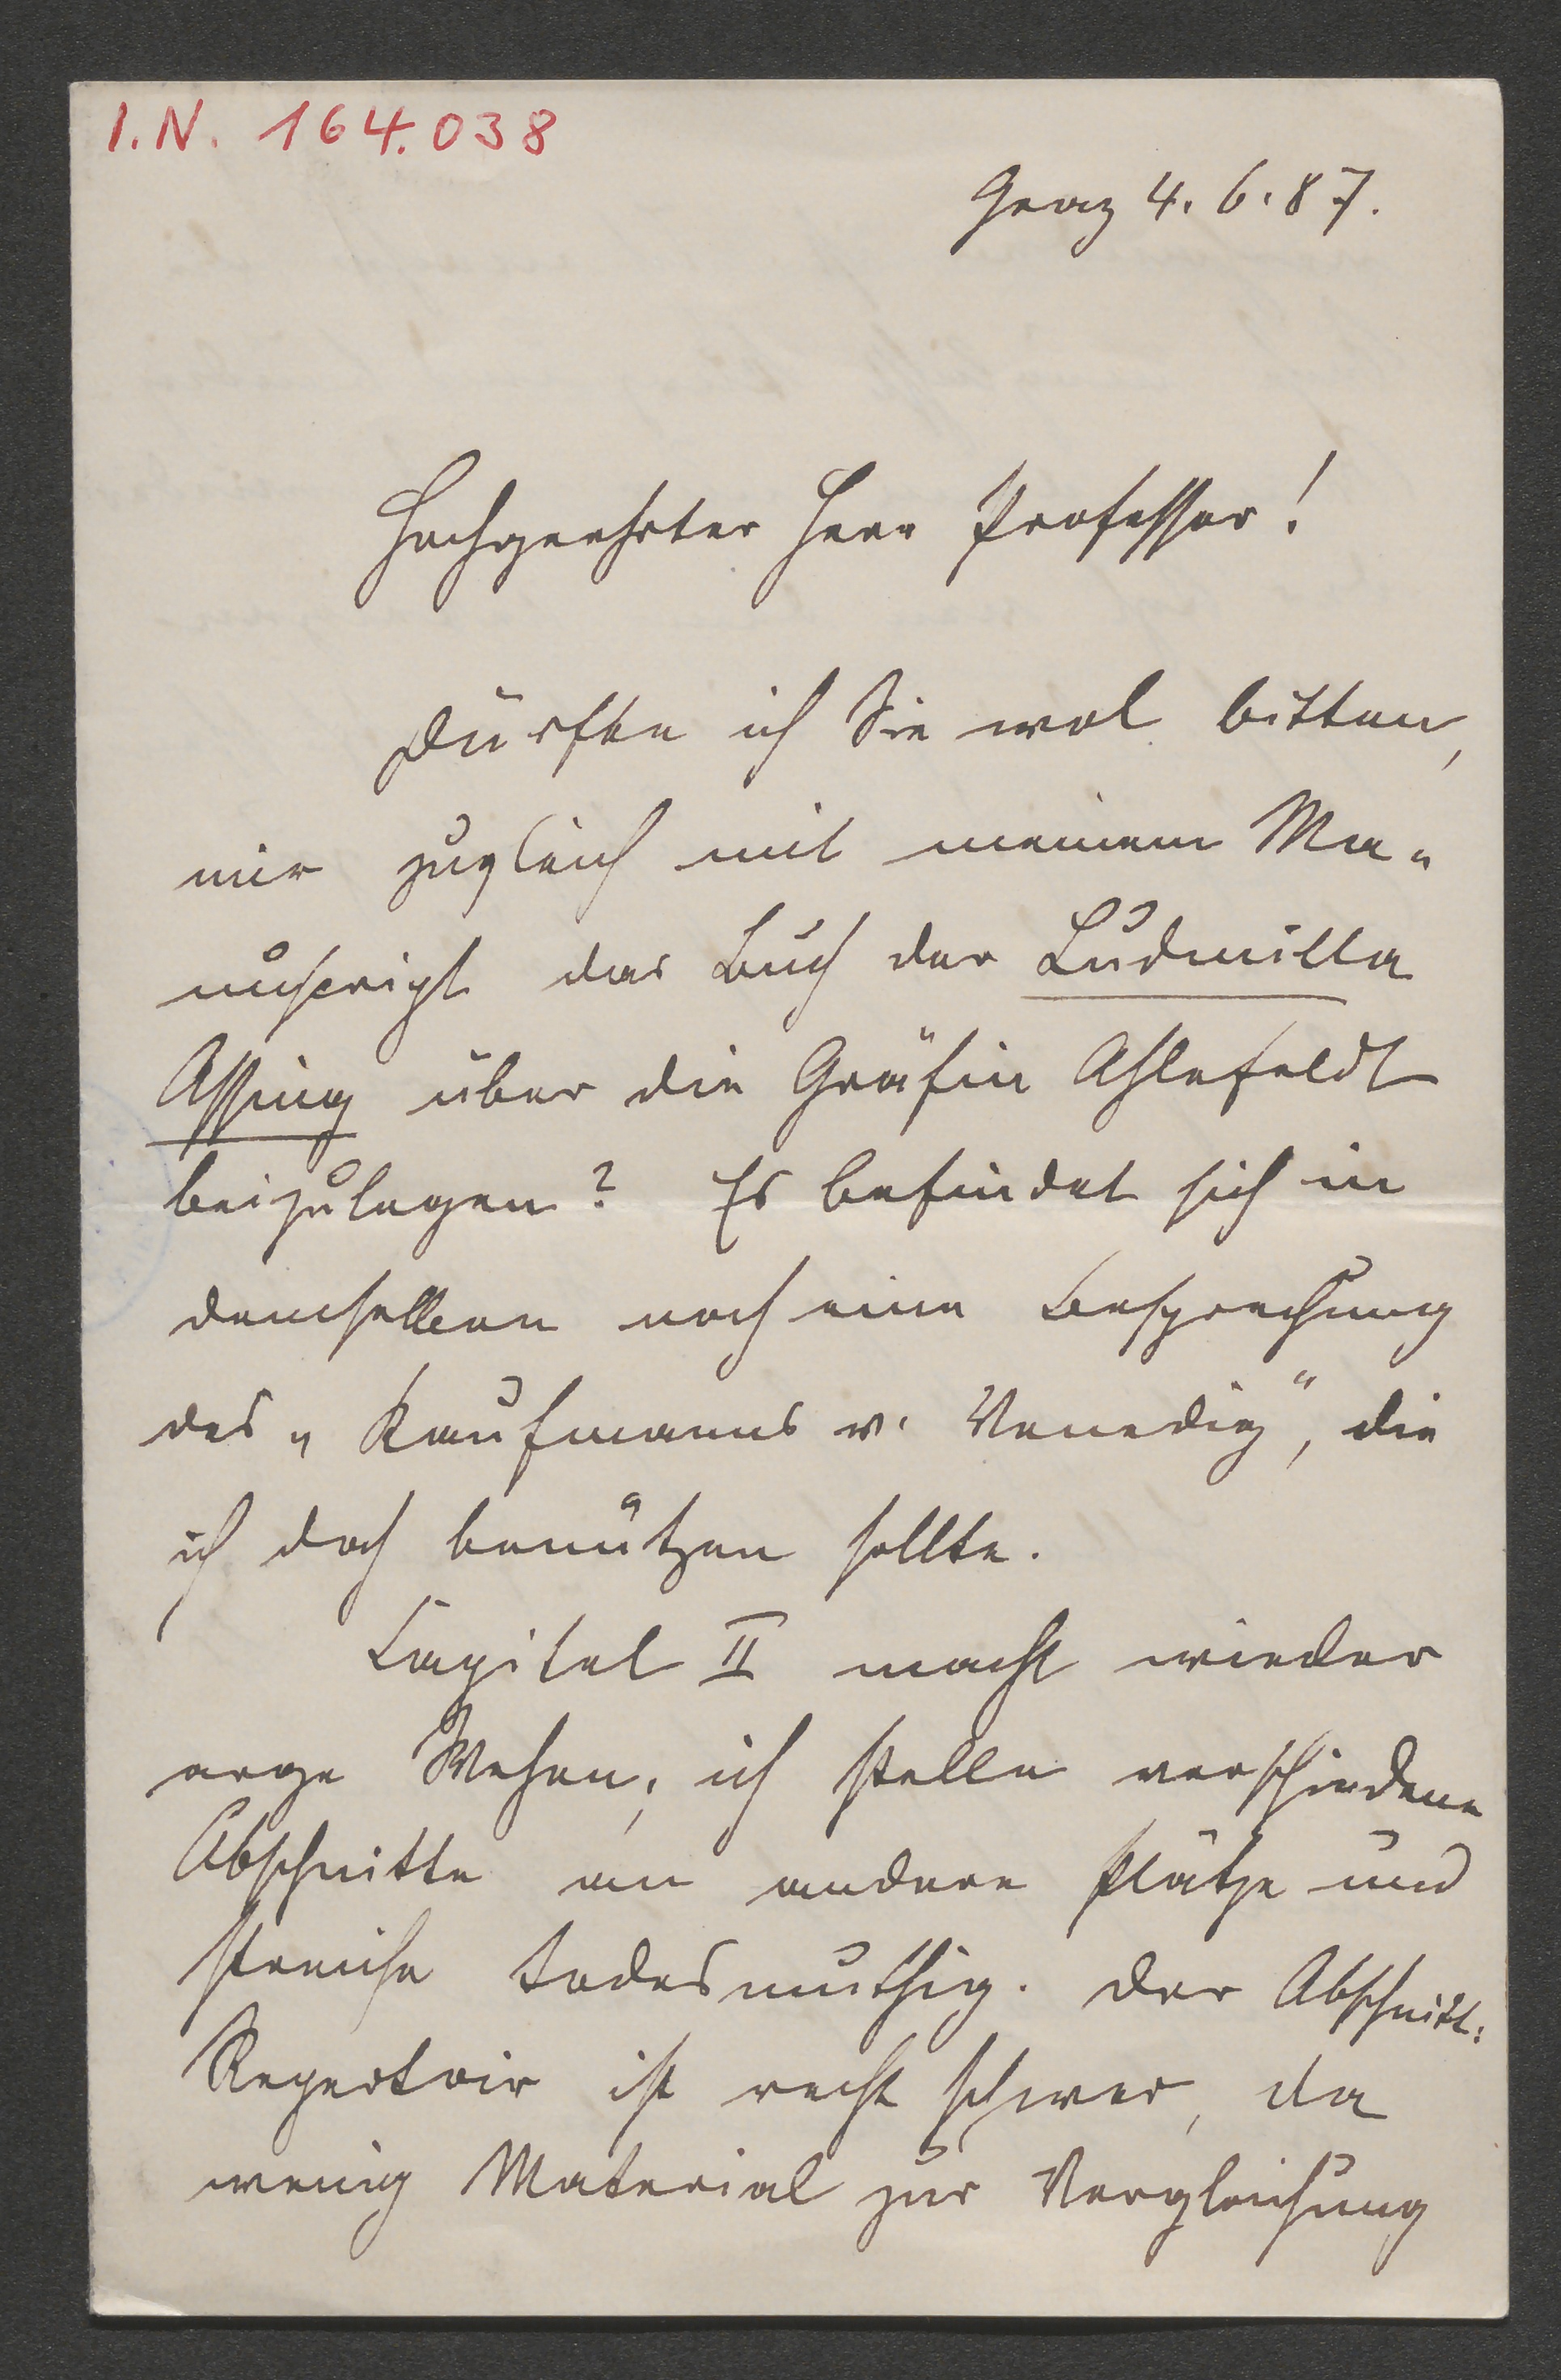 I.N. 164.038
Graz 4. 6. 87.
Hochgeehrter Herr Professor!
Dürfte ich Sie wol bitten,
mir zugleich mit meinem Ma„
nuscript das Buch der Ludmilla
Assing über die Gräfin Ahlefeldt
beizulegen? Es befindet sich in
demselben noch eine Besprechung
des „Kaufmanns v. Venedig“, die
ich doch benützen sollte.
Capitel II macht wieder
arge Wehen; ich stelle verschiedene
Abschnitte an andere Plätze und
streiche todesmuthig. Der Abschnitt:
Repertoir ist recht schwer, da
wenig Material zur Vergleichung